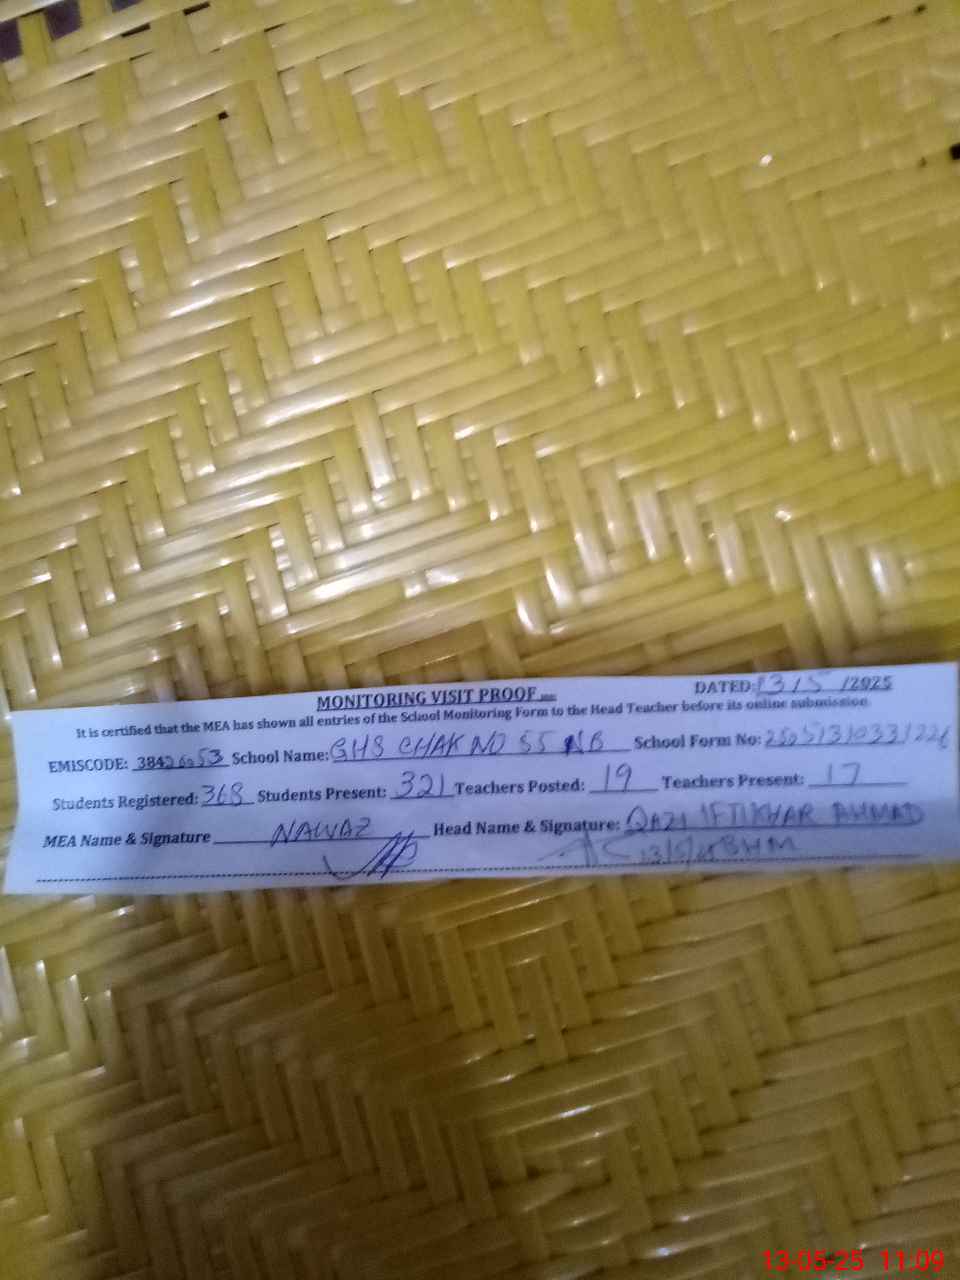 MONITORING VISIT PROOF
DATED: 13/5/2025
It is certified that the MEA has shown all entries of the School Monitoring Form to the Head Teacher before its online submission.
EMISCODE: 38426053 School Name: GHS CHAK NO 55 NB School Form No:
Students Registered: 368 Students Present: 321 Teachers Posted: 19 Teachers Present: 17
MEA Name & Signature NAWAZ Head Name & Signature: QAZI IFTIKHAR AHMAD
13/5/25 BHM
13-05-25 11:09